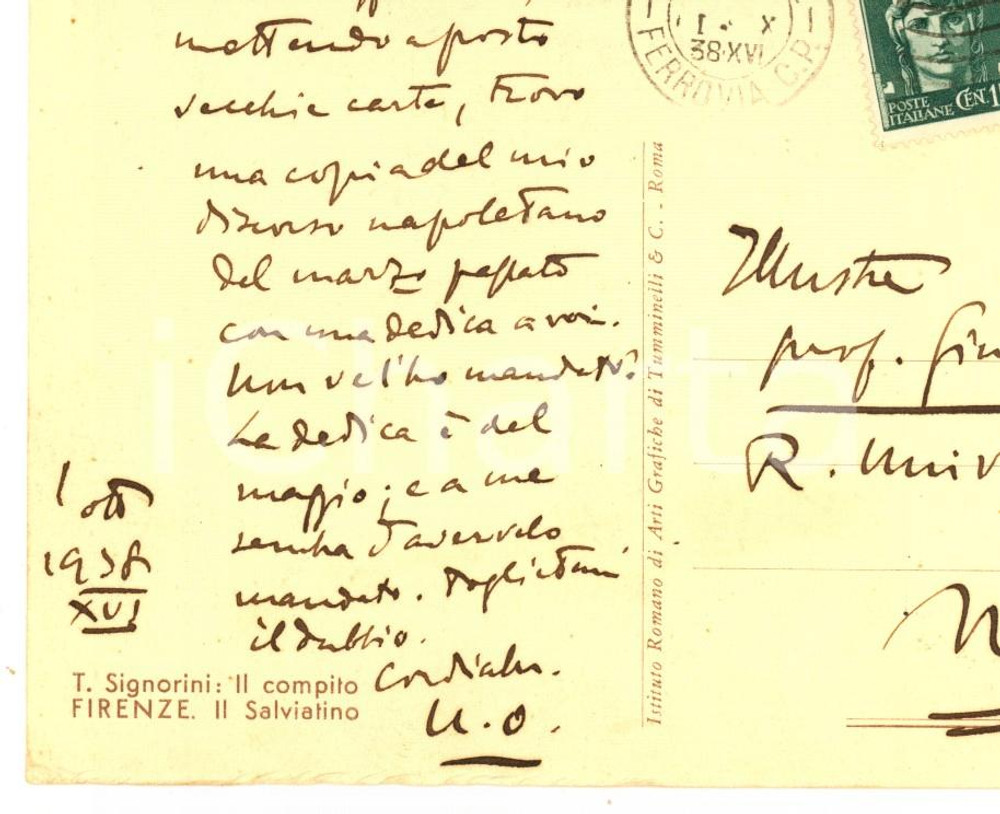 mettendo a posto
vecchie carte, trovo
una copia del mio
discorso napoletano
del marzo passato
con una dedica a voi.
Non ve l'ho mandato?
La dedica è del
maggio; e a me
sembra d'avervelo
mandato. Toglietemi
il dubbio.
Cordialm.
U. O.
1 ott
1938
XVI
T. Signorini: Il compito
FIRENZE. Il Salviatino
Istituto Romano di Arti Grafiche di Tumminelli & C. - Roma
1 X
38·XVI
FERROVIA C.P.
POSTE
ITALIANE CEN. 1
Illustre
prof.
R. Univ
iCharta